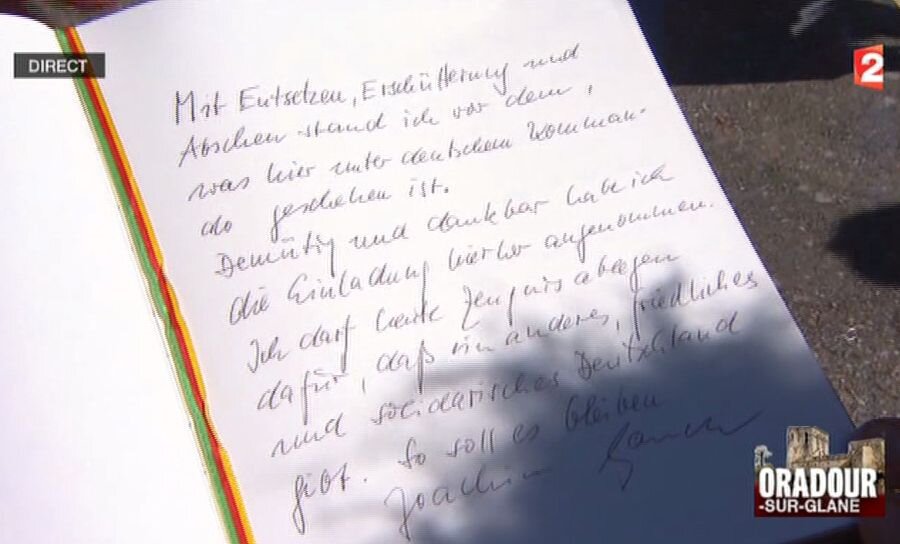 DIRECT
2
Mit Entsetzen, Erschütterung und
Abscheu stand ich vor dem,
was hier unter deutschem Komman-
do geschehen ist.
Demütig und dankbar habe ich
die Einladung hierher angenommen.
Ich darf heute Zeugnis ablegen
dafür, daß ein anderes, friedliches
und solidarisches Deutschland
gibt. So soll es bleiben
Joachim Gauck
ORADOUR
-SUR-GLANE